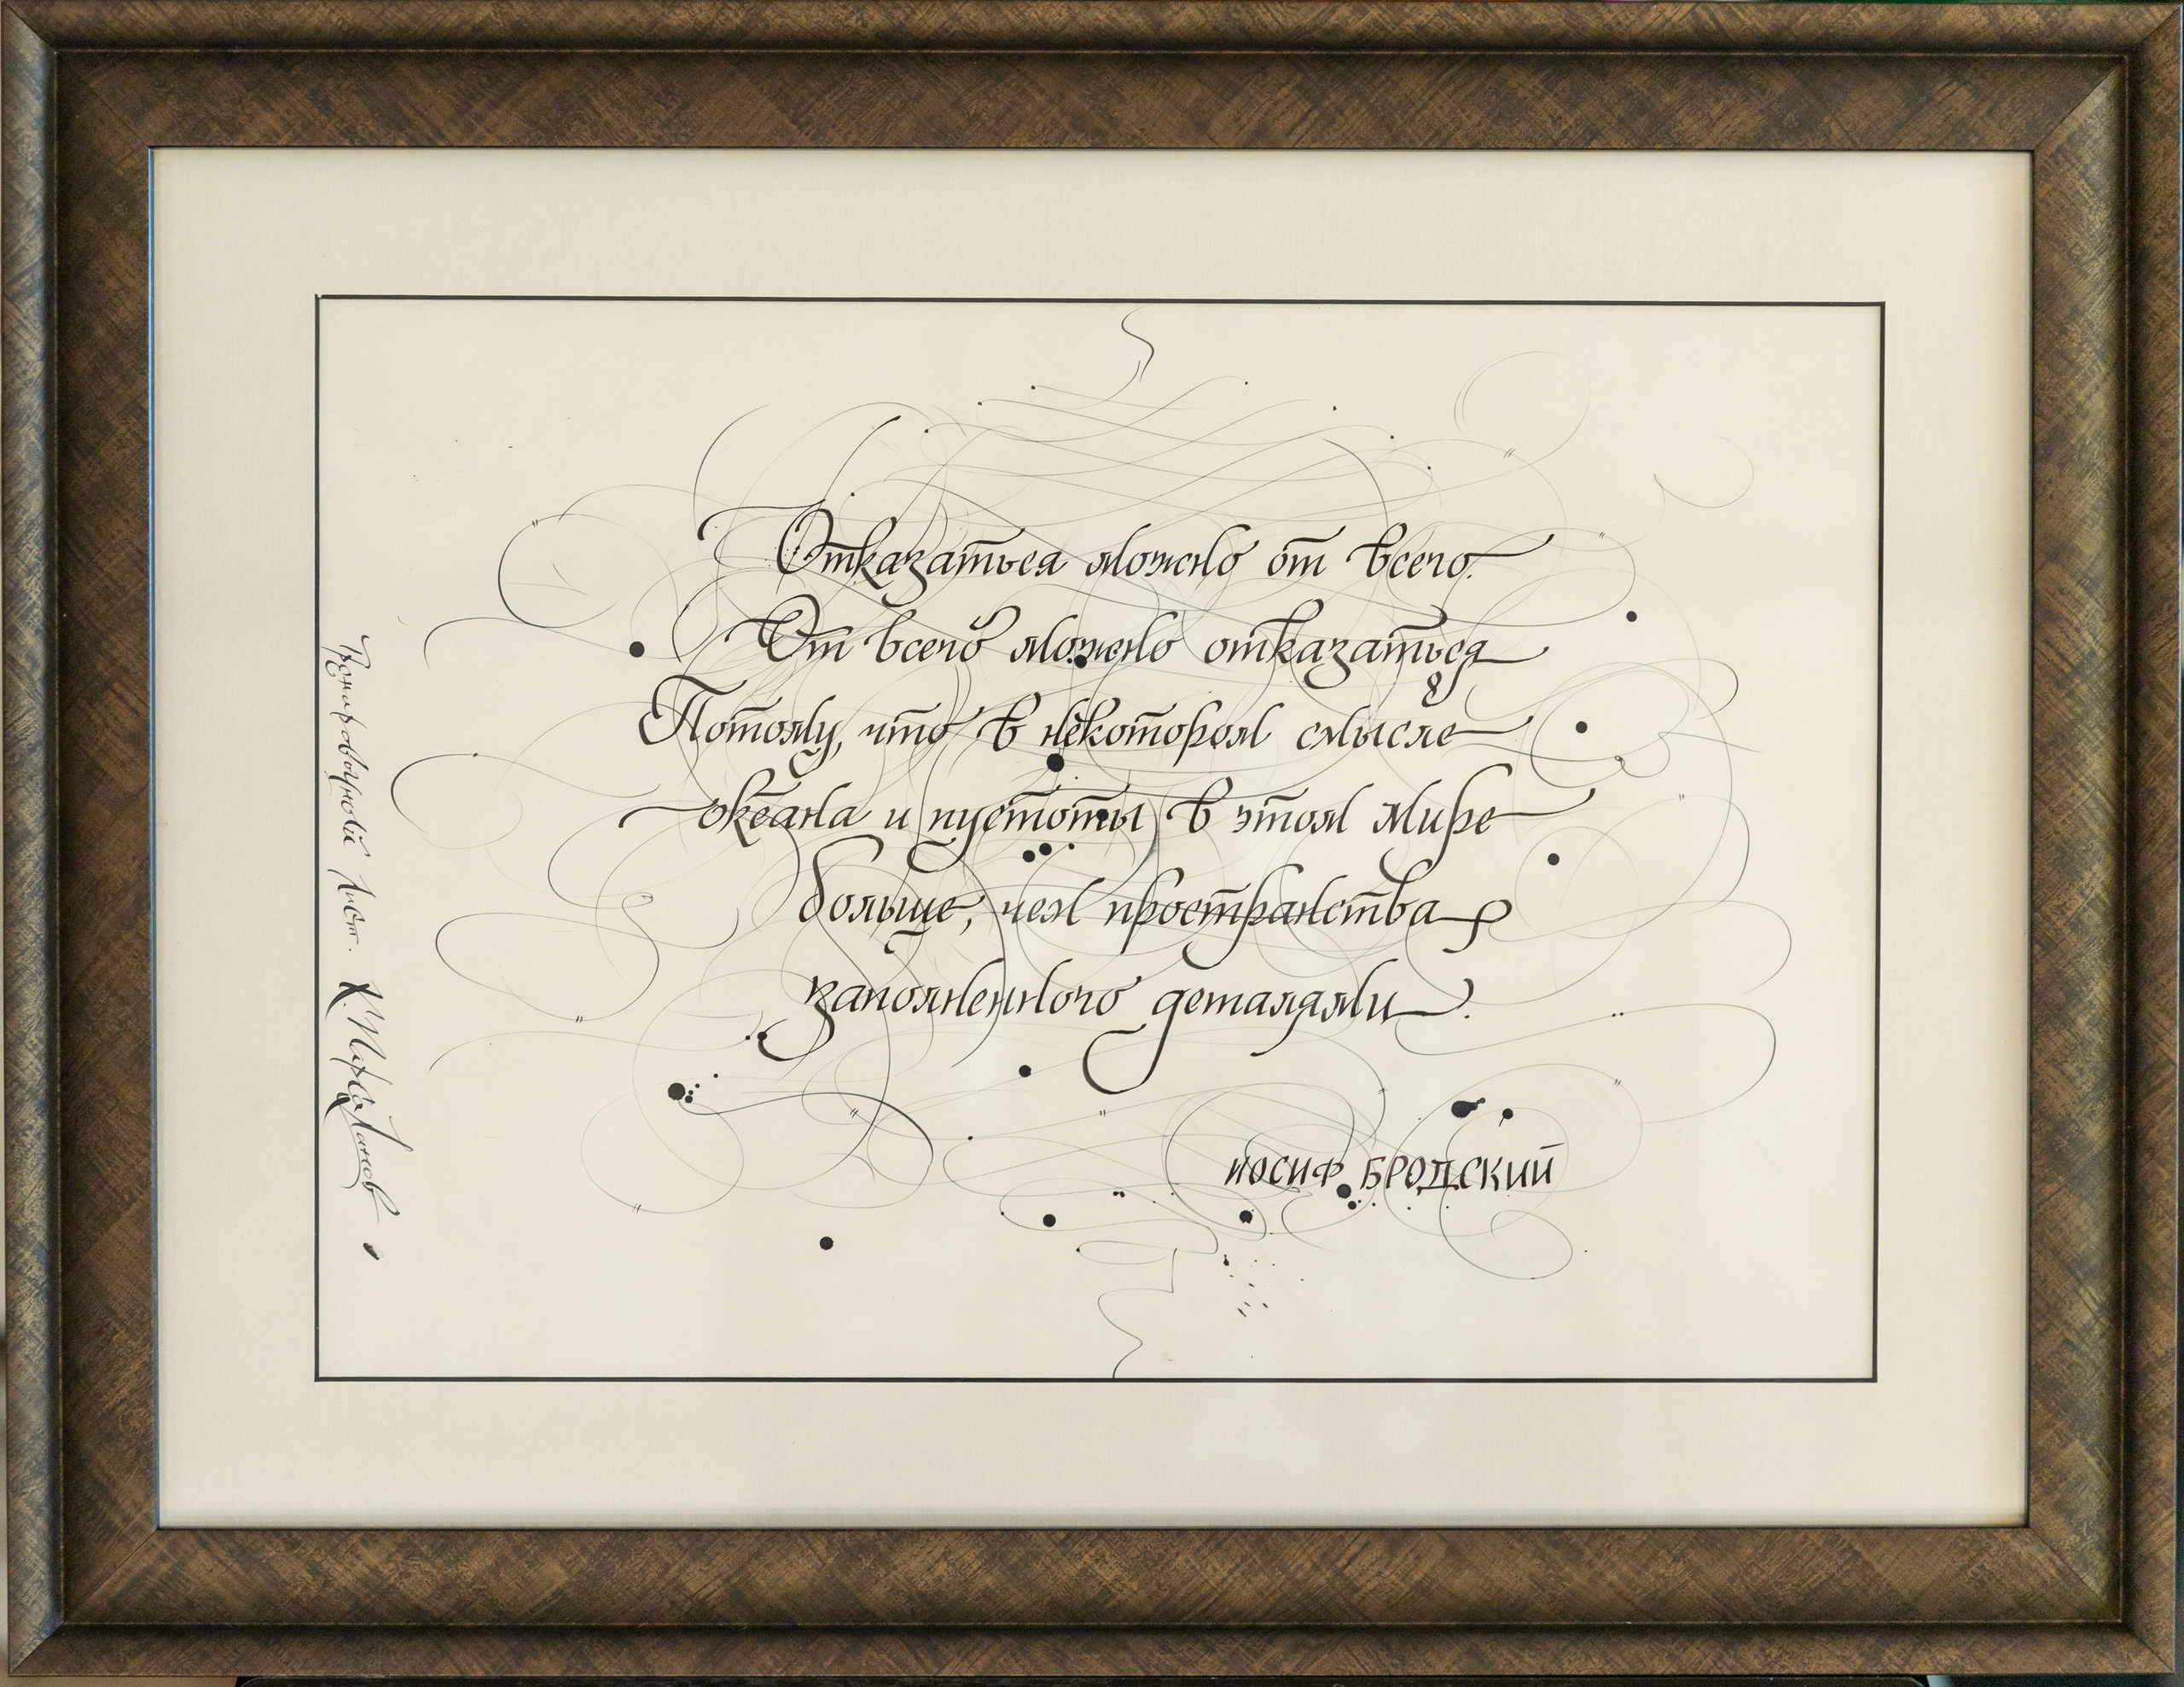 Отказаться можно от всего.
От всего можно отказаться
Потому, что в некотором смысле
океана и пустоты в этом мире
больше, чем пространства
заполненного деталями.
ИОСИФ БРОДСКИЙ
Тренировочный лист.